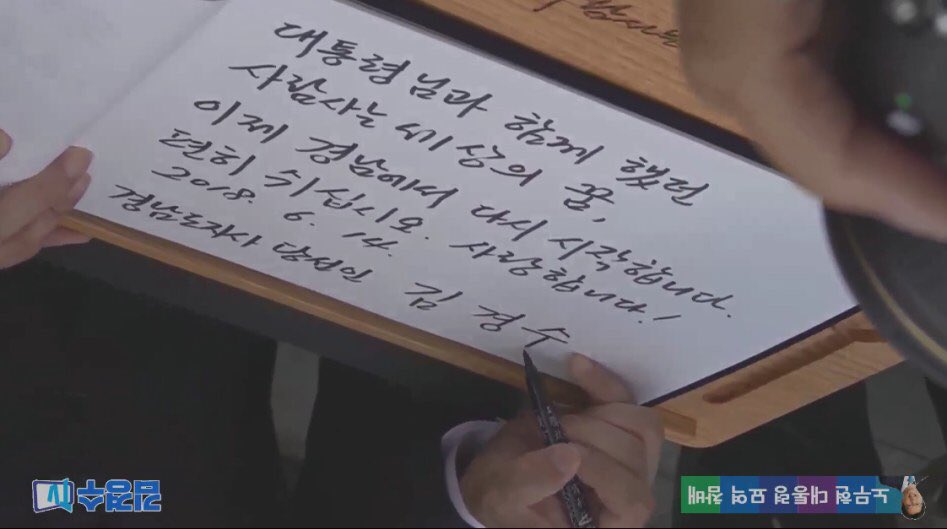 대통령님과 함께 했던
사람사는 세상의 꿈,
이제 경남에서 다시 시작합니다.
편히 쉬십시오. 사랑합니다!
2018. 6. 14.
경남도지사 당선인 김경수
김경수TV
노무현 대통령 묘역 참배